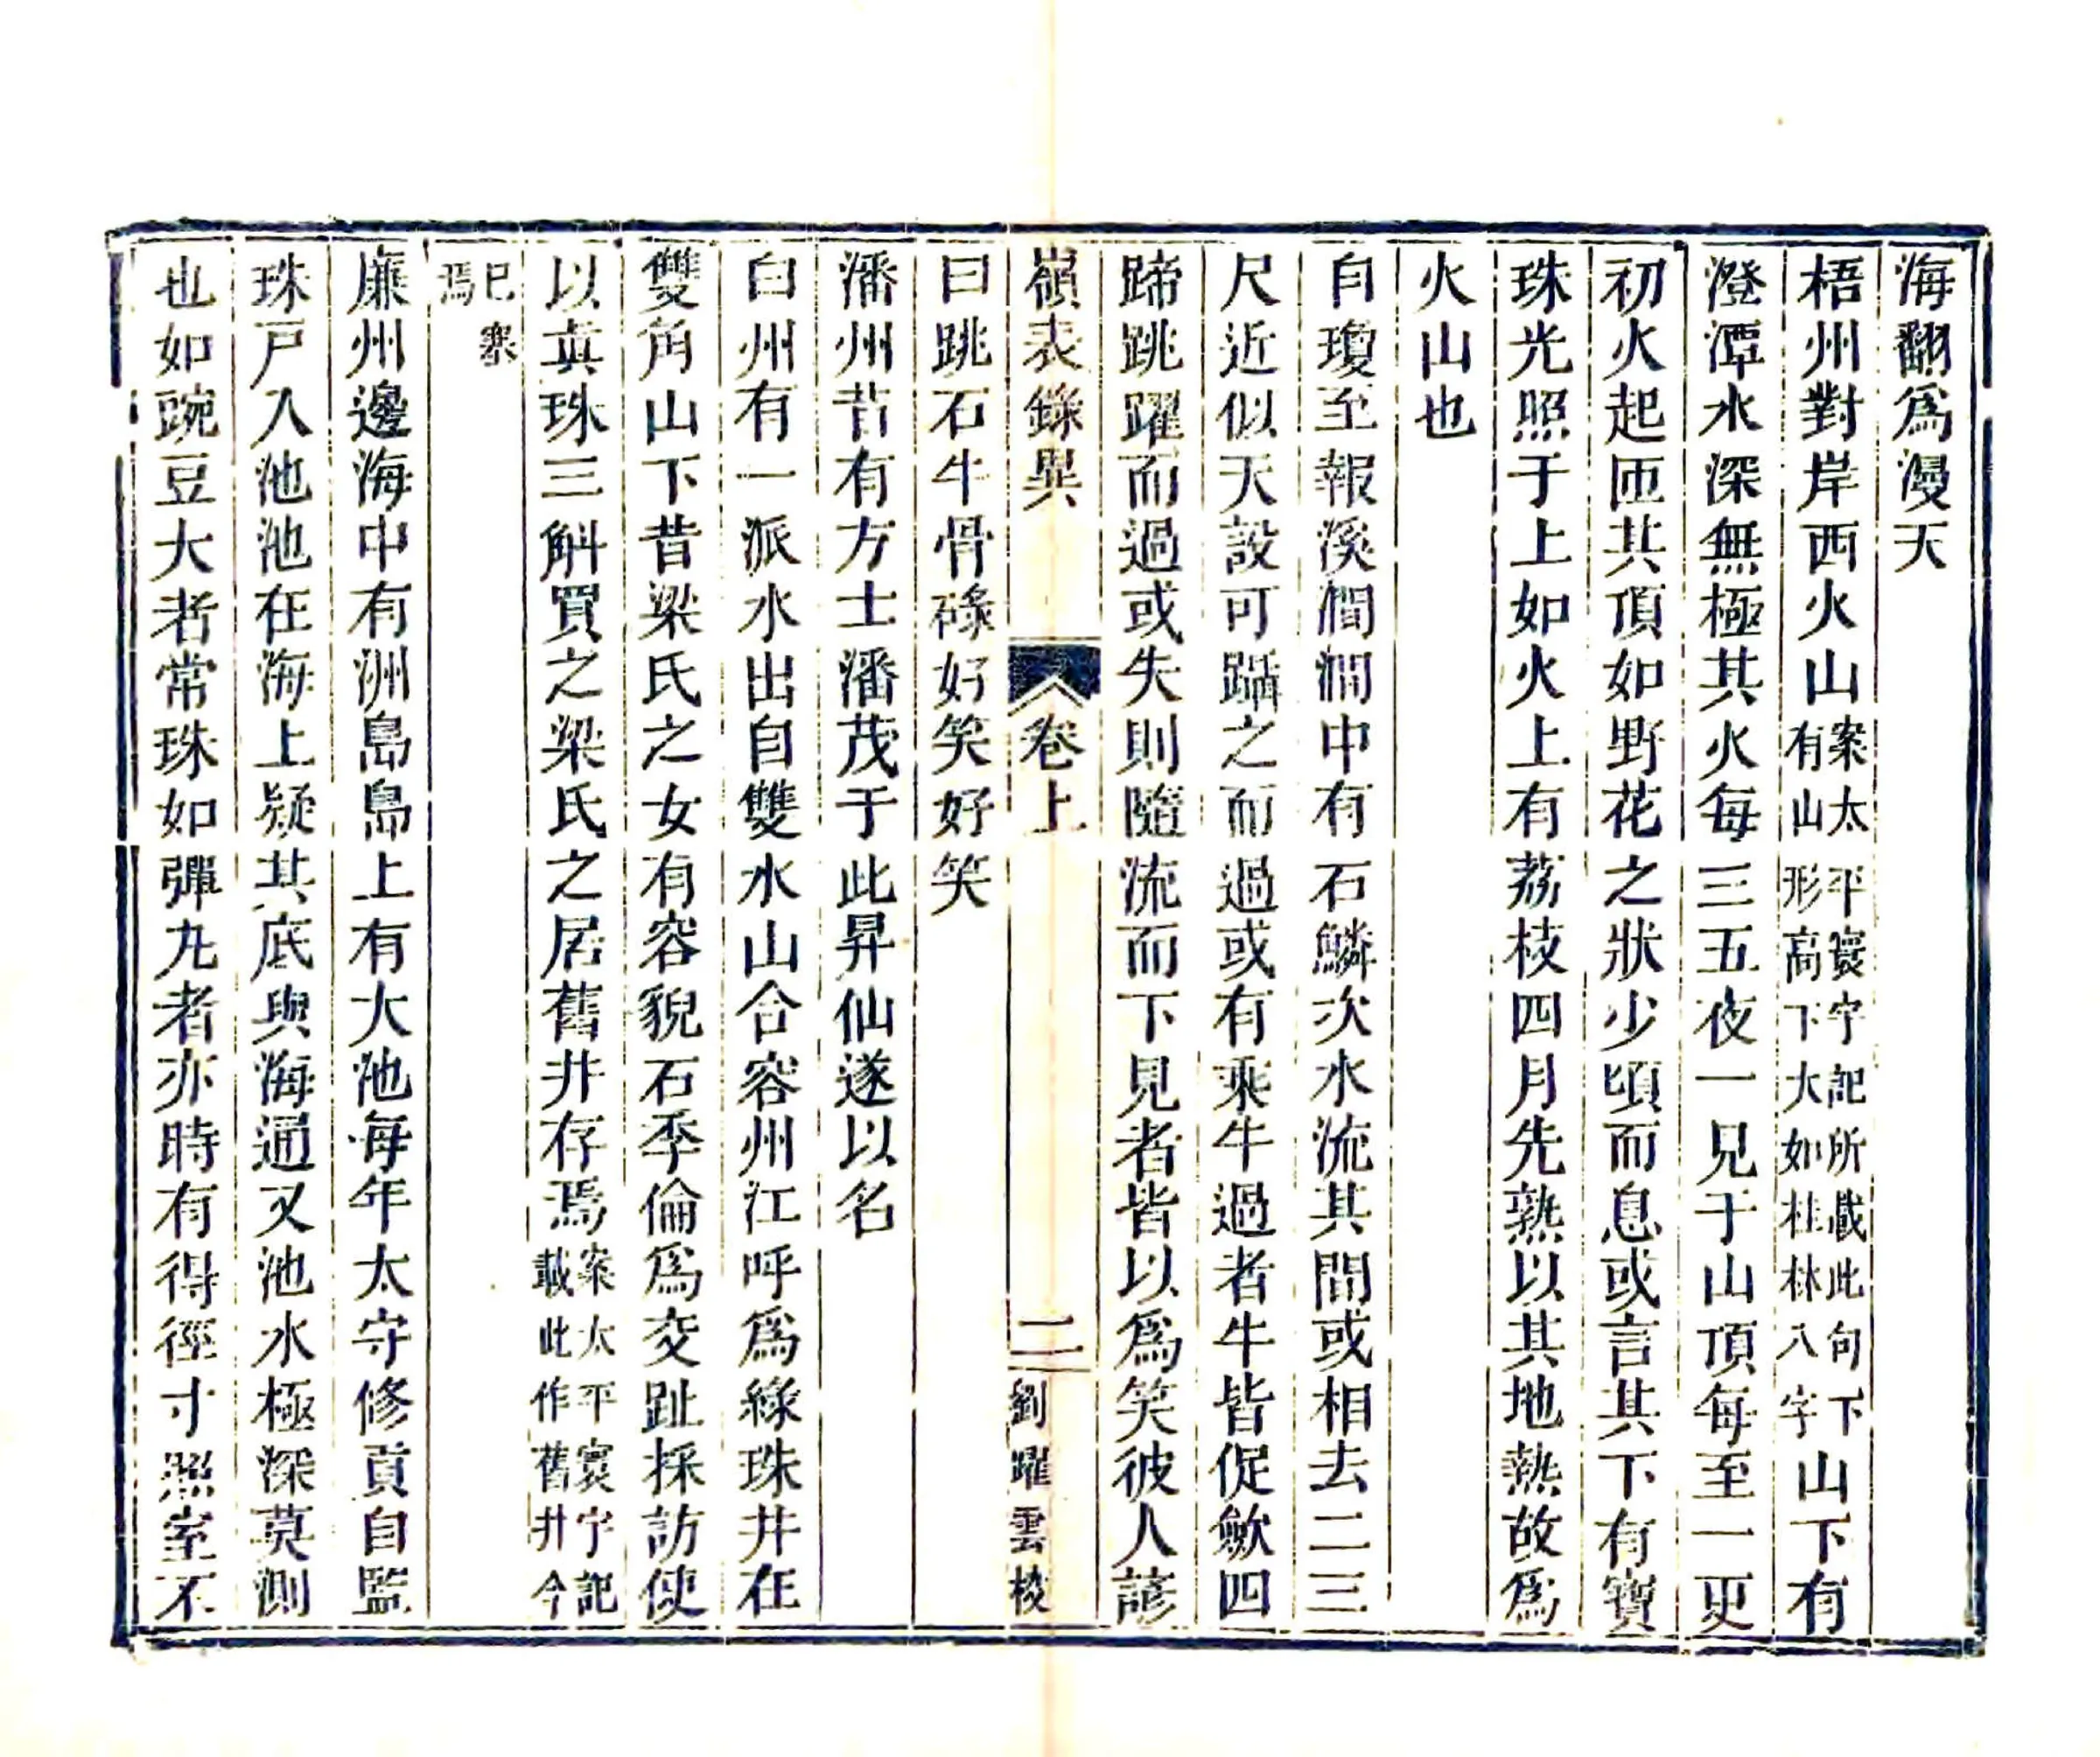 海翻爲漫天
梧州對岸西火山案太平寰宇記所載此句下有山形高下大如桂林八字山下有
澄潭水深無極其火每三五夜一見于山頂每至一更
初火起匝其頂如野花之狀少頃而息或言其下有寶
珠光照于上如火上有荔枝四月先熟以其地熱故爲
火山也
自瓊至報溪澗澗中有石鱗次水流其間或相去二三
尺近似天設可躡之而過或有乘牛過者牛皆促斂四
蹄跳躍而過或失則隨流而下見者皆以爲笑彼人諺
嶺表錄異 卷上 二 劉躍雲校
曰跳石牛骨碌好笑好笑
潘州昔有方士潘茂于此昇仙遂以名
白州有一派水出自雙水山合容州江呼爲綠珠井在
雙角山下昔梁氏之女有容貌石季倫爲交趾採訪使
以真珠三斛買之梁氏之居舊井存焉案太平寰宇記載此作舊井今
已塞焉
廉州邊海中有洲島島上有大池每年太守修貢自監
珠戸入池池在海上疑其底與海通又池水極深莫測
也如豌豆大者常珠如彈丸者亦時有得徑寸照室不